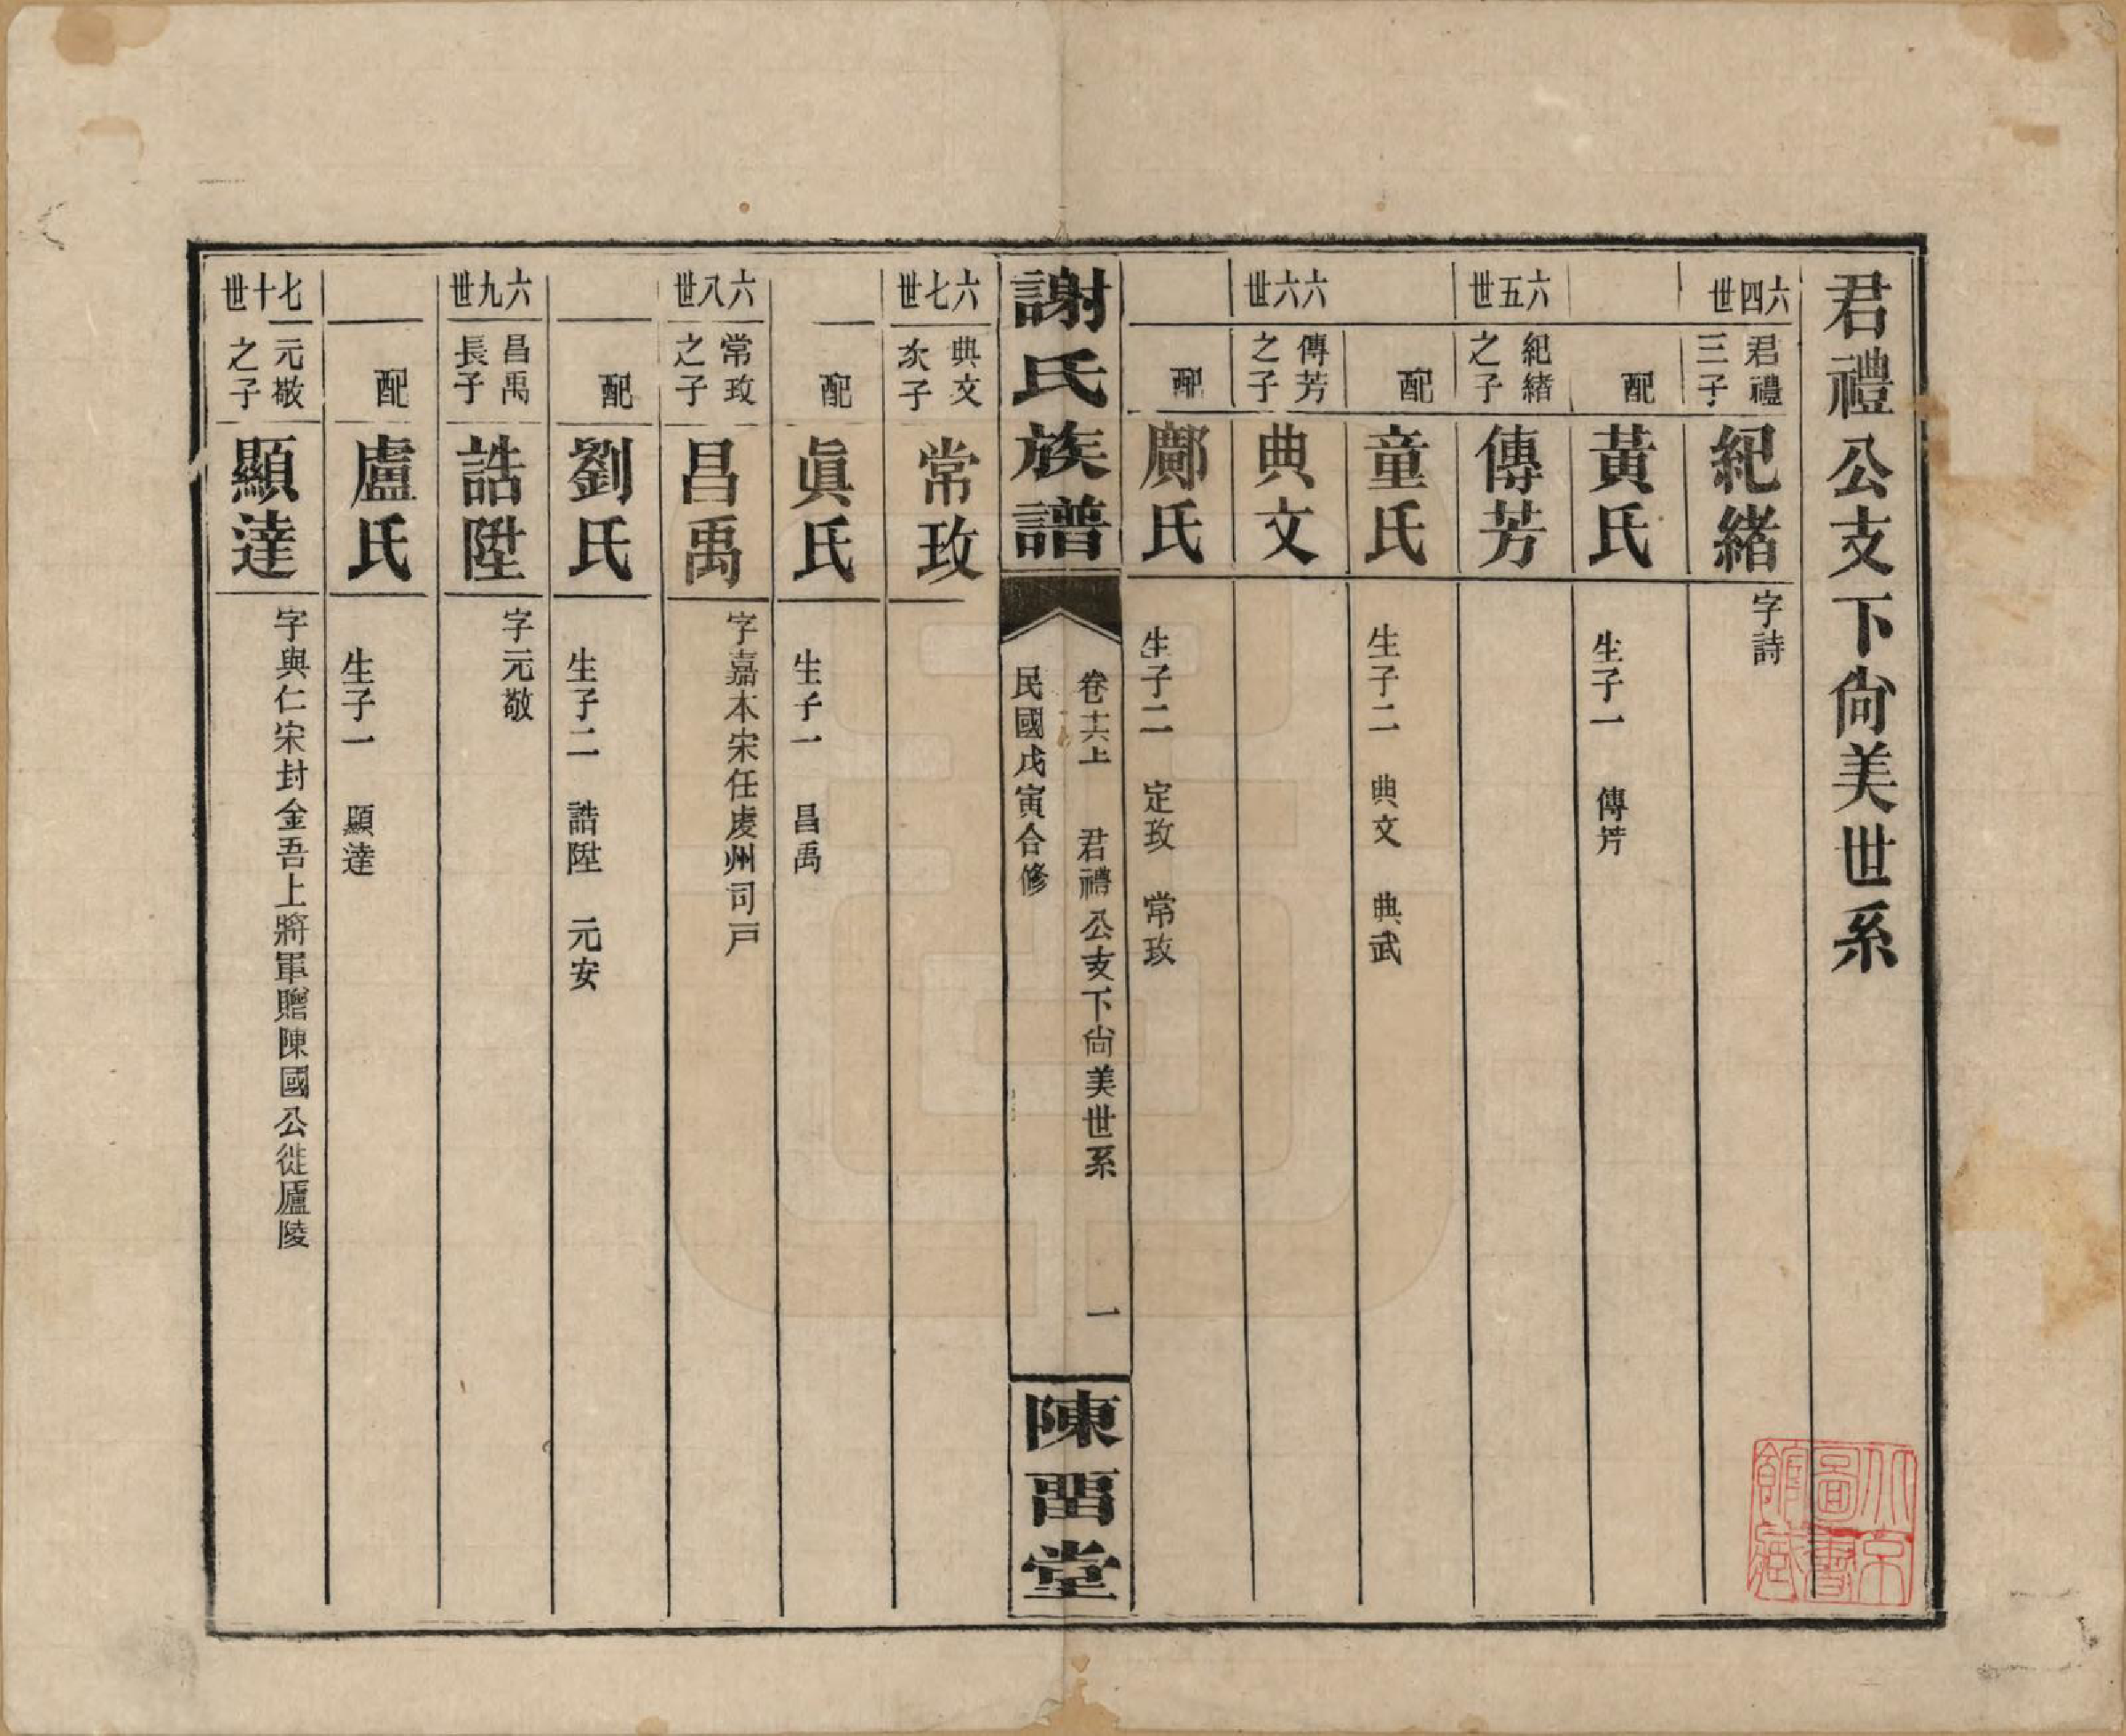 君禮公支下尙美世系
六四世 君禮三子 紀緒 字詩
配 黃氏 生子一 傳芳
六五世 紀緒之子 傳芳
配 童氏 生子二 典文 典武
六六世 傳芳之子 典文
配 鄺氏 生子二 定玫 常玫
謝氏族譜 卷十六上 君禮公支下尙美世系 一
民國戊寅合修
陳畱堂
六七世 典文次子 常玫
配 眞氏 生子一 昌禹
六八世 常玫之子 昌禹 字嘉本宋任虔州司戸
配 劉氏 生子二 誥陞 元安
六九世 昌禹長子 誥陞 字元敬
配 盧氏 生子一 顯達
七十世 元敬之子 顯達 字與仁宋封金吾上將軍贈陳國公徙廬陵
北京圖書館藏